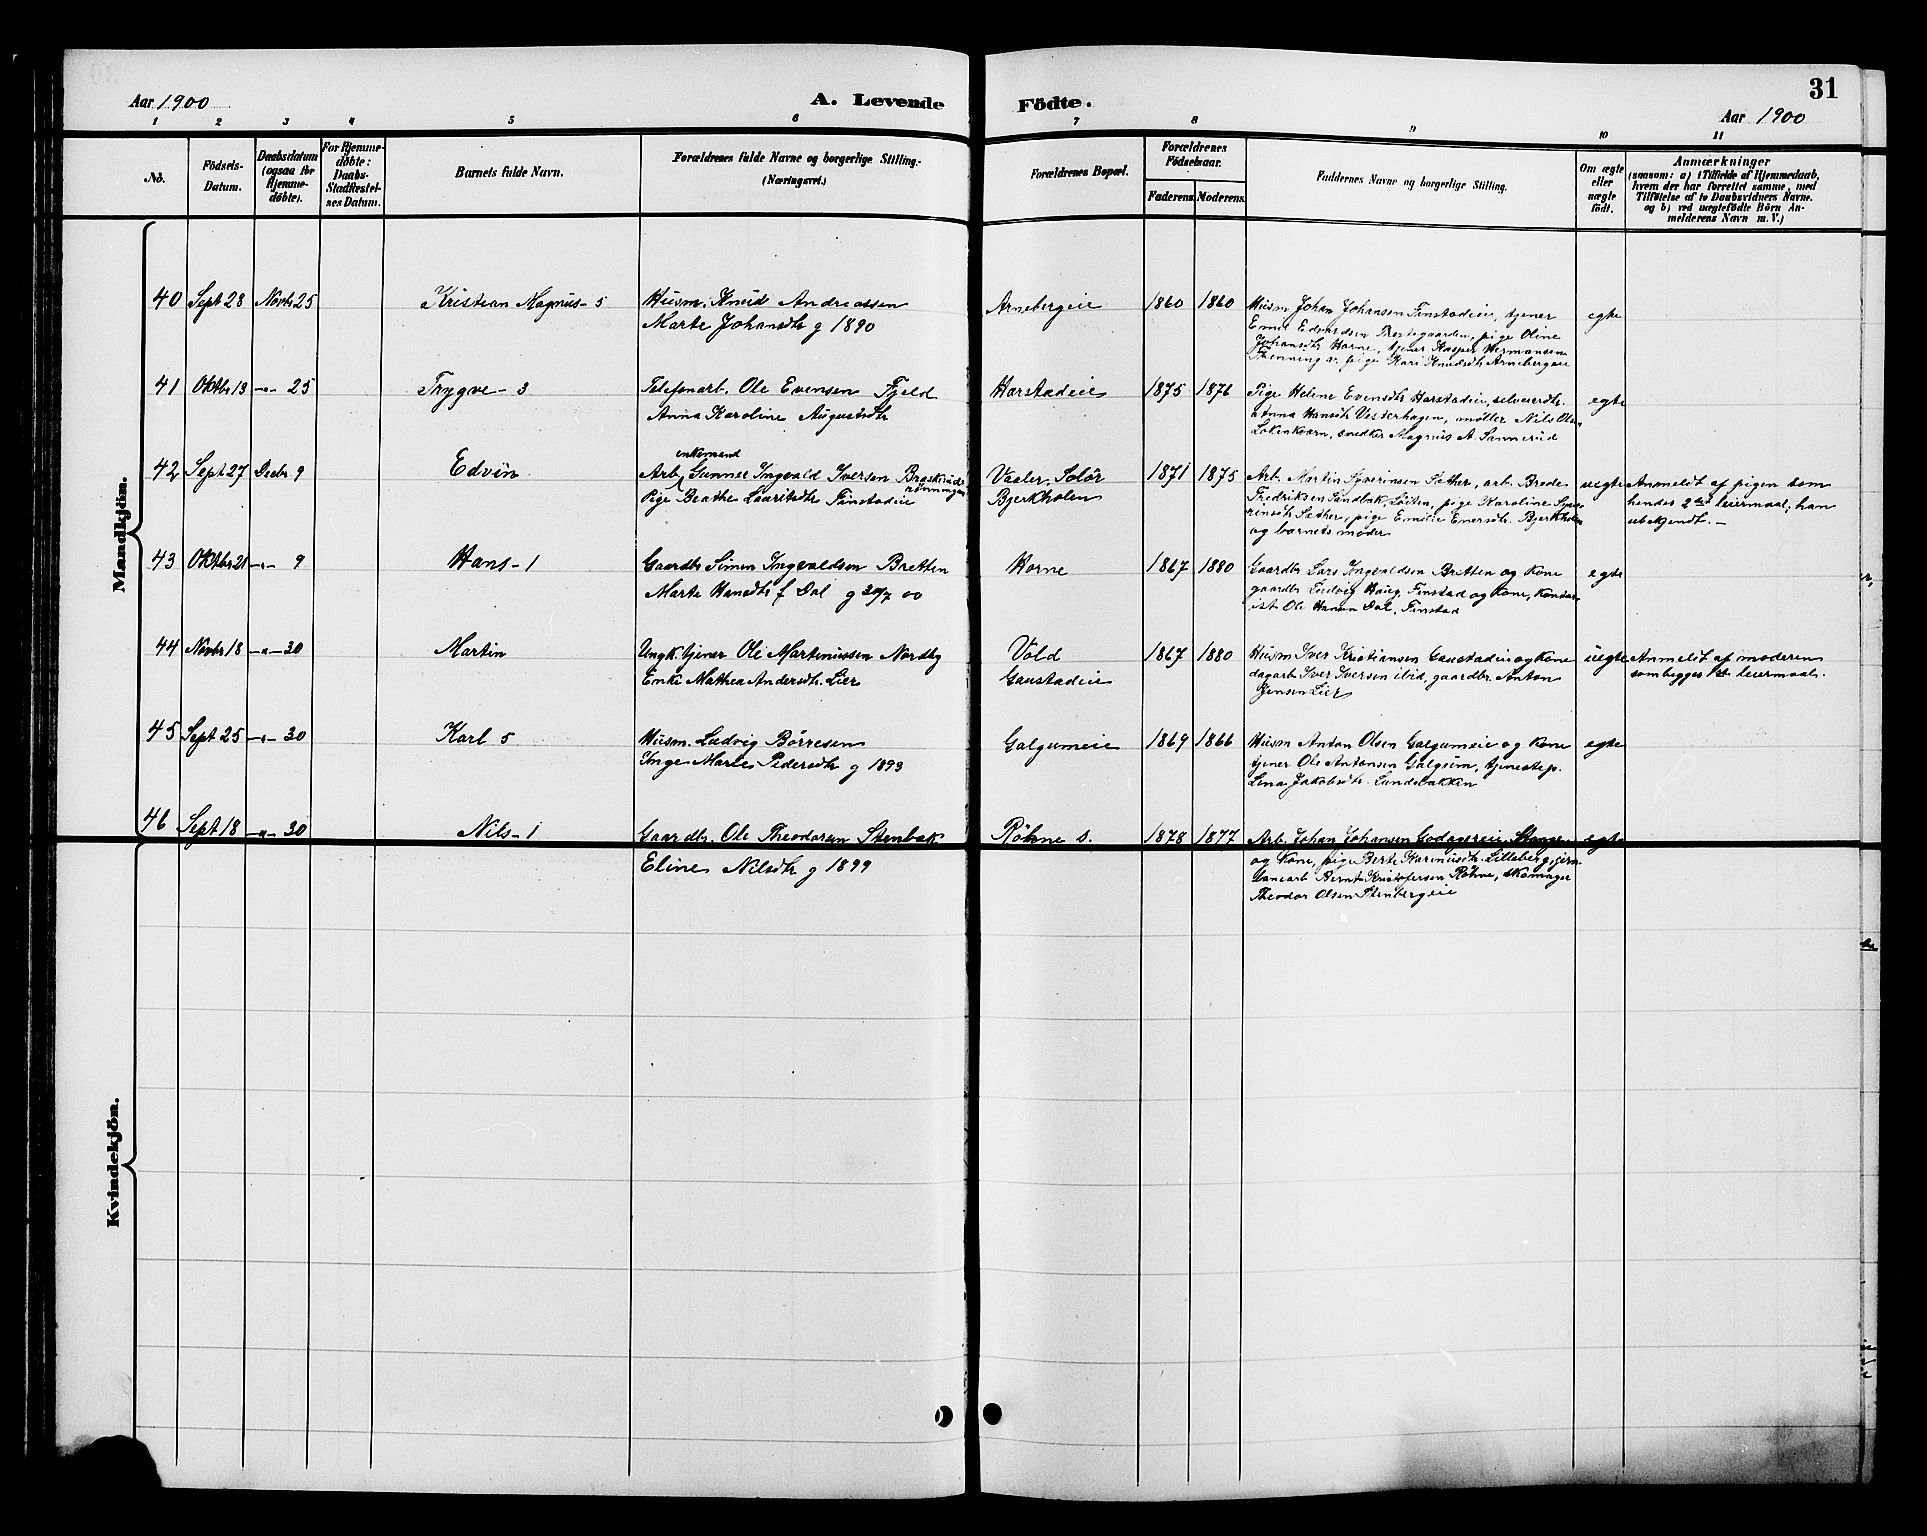 31
Aar 1900
A. Levende Födte.
Aar 1900
1 2 3 4 5 6 7 8 9 10 11
No.
Födsels-
Datum.
Daabsdatum
(ogsaa for
Hjemme-
døbte).
For Hjemme-
døbte:
Daabs-
Stadfæstel-
ses Datum.
Barnets fulde Navn.
Forældrenes fulde Navne og borgerlige Stilling.
(Næringsvei.)
Forældrenes Bopæl.
Forældrenes
Födselsaar.
Faderens.
Moderens.
Faddernes Navne og borgerlige Stilling.
Om ægte
eller
uægte
født.
Anmærkninger
(saasom: a) i Tilfælde af Hjemmedaab,
hvem der har forrettet samme, med
Tilföielse af to Daabsvidners Navne.
og b) ved uægtefödte Börn An-
melderens Navn m. V.)
Mandkjön.
40 Sept 28 Novbr 25 Kristian Magnus - 5
Husm. Knud Andreassen
Marte Johansdtr g 1890
Arnebergeie 1860 1860
Husm Johan Johansen Finstadeie, tjener
Emil Edvardsen Prestegaarden, pige Oline
Johansdtr Horne, tjener Kasper Hermansen
pige Kari Knudsdtr Arnebergeie
egte
41 Oktbr 13 -"- 25 Trygve - 3
Telefonarb. Ole Evensen Fjeld
Anna Karoline Augustsdtr
Harstadeie 1875 1876
Pige Helene Evensdtr Harstadeie, selveierdtr.
Anna Hansdtr Vesterhagen, møller Nils Olsen
Løkenkværn, snedker Magnus A. Sannerud
egte
42 Sept 27 Decbr 9 Edvin
enkemand
Arb. Gunner Ingvald Iversen
Pige Beathe Lauritsdtr Finstadeie
Vaaler, Solør
Bjerkholen
1871 1875
Arb. Martin Syverinsen Sæther, arb. Brede
Fredriksen Sandbak, Løiten, pige Karoline Syve-
rinsdtr Sæther, pige Emilie Einersdtr. Bjerkholen
og barnets moder
uegte
Anmeldt af pigen som
hendes 2det leiermaal, han
ubekjendt. -
43 Oktbr 21 -"- 9 Hans - 1
Gaardbr Simen Ingvaldsen Bretten
Marte Hansdtr f Dal g 30/7 00
Horne 1867 1880
Gaardbr Lars Ingvaldsen Britten og kone
gaardbr Ludvig Haug, Finstad og kone, kontor-
ist Ole Hansen Dal, Finstad
egte
44 Novbr 18 -"- 30 Martin
Ungk. tjener Ole Martinussen Nordby
Enke Mathea Andersdtr. Lier
Vold
Gaustadeie
1867 1880
Husm Iver Kristiansen Gaustadeie og kone
dagarb Iver Iversen ibid, gaardbr. Anton
Jensen Lier
uegte
Anmeldt af moderen
som begges 1ste leiermaal.
45 Sept 25 -"- 30 Karl 5
Husm. Ludvig Børresen
Inge Marie Pedersdtr g 1893
Galgumeie 1869 1866
Husm Anton Olsen Galgumeie og kone
tjener Ole Antonsen Galgum, tjenestep.
Lina Jakobsdtr. Lundsbakken
egte
46 Sept 18 -"- 30 Nils - 1
Gaardbr. Ole Theodorsen Stenbæk
Eline Nilsdtr g 1899
Røhne s. 1878 1877
Arb. Johan Johansen Godagereie, Stange
og kone, pige Berte Karinusdtr. Lilleberg, jern-
banearb Bernt Kristofersen Røhne, skomager
Theodor Olsen Stenbergeie
egte
Kvindekjön.